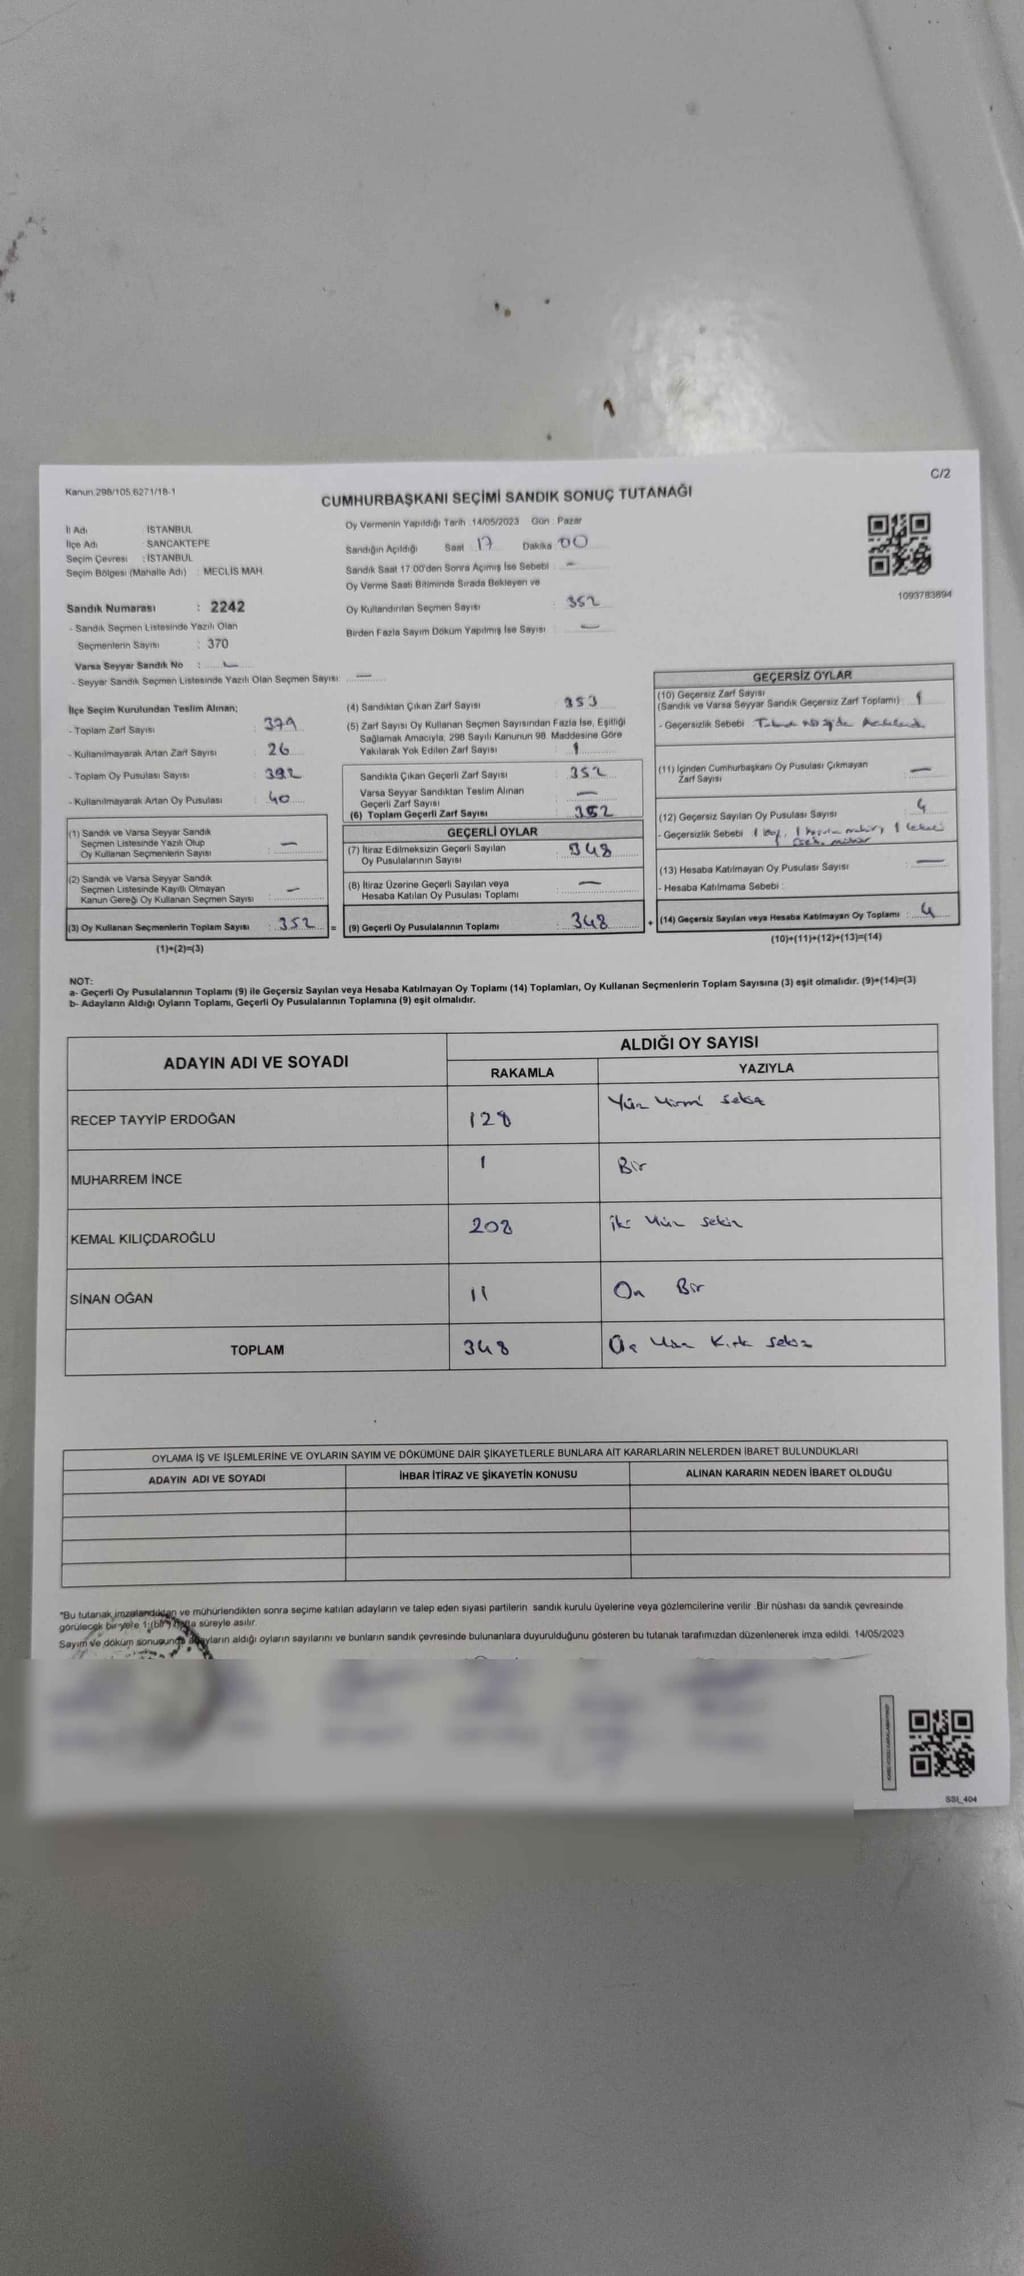 Kanun:298/105,6271/18-1
C/2
CUMHURBAŞKANI SEÇİMİ SANDIK SONUÇ TUTANAĞI
İl Adı : İSTANBUL
İlçe Adı : SANCAKTEPE
Seçim Çevresi : İSTANBUL
Seçim Bölgesi (Mahalle Adı) : MECLİS MAH.
Sandık Numarası : 2242
- Sandık Seçmen Listesinde Yazılı Olan
Seçmenlerin Sayısı : 370
Varsa Seyyar Sandık No : —
- Seyyar Sandık Seçmen Listesinde Yazılı Olan Seçmen Sayısı: —
Oy Vermenin Yapıldığı Tarih :14/05/2023 Gün : Pazar
Sandığın Açıldığı Saat : 17 Dakika : 00
Sandık Saat 17:00'den Sonra Açımış İse Sebebi : —
Oy Verme Saati Bitiminde Sırada Bekleyen ve
Oy Kullandırılan Seçmen Sayısı : 352
Birden Fazla Sayım Döküm Yapılmış İse Sayısı : —
1093783894
İlçe Seçim Kurulundan Teslim Alınan;
- Toplam Zarf Sayısı : 379
- Kullanılmayarak Artan Zarf Sayısı : 26
- Toplam Oy Pusulası Sayısı : 392
- Kullanılmayarak Artan Oy Pusulası : 40
(1) Sandık ve Varsa Seyyar Sandık
Seçmen Listesinde Yazılı Olup
Oy Kullanan Seçmenlerin Sayısı : —
(2) Sandık ve Varsa Seyyar Sandık
Seçmen Listesinde Kayıtlı Olmayan
Kanun Gereği Oy Kullanan Seçmen Sayısı : —
(3) Oy Kullanan Seçmenlerin Toplam Sayısı : 352 =
(1)+(2)=(3)
(4) Sandıktan Çıkan Zarf Sayısı : 353
(5) Zarf Sayısı Oy Kullanan Seçmen Sayısından Fazla İse, Eşitliği
Sağlamak Amacıyla, 298 Sayılı Kanunun 98. Maddesine Göre
Yakılarak Yok Edilen Zarf Sayısı : 1
Sandıkta Çıkan Geçerli Zarf Sayısı : 352
Varsa Seyyar Sandıktan Teslim Alınan
Geçerli Zarf Sayısı : —
(6) Toplam Geçerli Zarf Sayısı : 352
GEÇERLİ OYLAR
(7) İtiraz Edilmeksizin Geçerli Sayılan
Oy Pusulalarının Sayısı : 348
(8) İtiraz Üzerine Geçerli Sayılan veya
Hesaba Katılan Oy Pusulası Toplamı : —
(9) Geçerli Oy Pusulalarının Toplamı : 348 +
GEÇERSİZ OYLAR
(10) Geçersiz Zarf Sayısı
(Sandık ve Varsa Seyyar Sandık Geçersiz Zarf Toplamı) : 1
- Geçersizlik Sebebi :
(11) İçinden Cumhurbaşkanı Oy Pusulası Çıkmayan
Zarf Sayısı : —
(12) Geçersiz Sayılan Oy Pusulası Sayısı : 4
- Geçersizlik Sebebi :
(13) Hesaba Katılmayan Oy Pusulası Sayısı : —
- Hesaba Katılmama Sebebi :
(14) Geçersiz Sayılan veya Hesaba Katılmayan Oy Toplamı : 4
(10)+(11)+(12)+(13)=(14)
NOT:
a- Geçerli Oy Pusulalarının Toplamı (9) ile Geçersiz Sayılan veya Hesaba Katılmayan Oy Toplamı (14) Toplamları, Oy Kullanan Seçmenlerin Toplam Sayısına (3) eşit olmalıdır. (9)+(14)=(3)
b- Adayların Aldığı Oyların Toplamı, Geçerli Oy Pusulalarının Toplamına (9) eşit olmalıdır.
ADAYIN ADI VE SOYADI
ALDIĞI OY SAYISI
RAKAMLA YAZIYLA
RECEP TAYYİP ERDOĞAN 128 Yüz Yirmi Sekiz
MUHARREM İNCE 1 Bir
KEMAL KILIÇDAROĞLU 208 İki Yüz Sekiz
SİNAN OĞAN 11 On Bir
TOPLAM 348 Üç Yüz Kırk Sekiz
OYLAMA İŞ VE İŞLEMLERİNE VE OYLARIN SAYIM VE DÖKÜMÜNE DAİR ŞİKAYETLERLE BUNLARA AİT KARARLARIN NELERDEN İBARET BULUNDUKLARI
ADAYIN ADI VE SOYADI İHBAR İTİRAZ VE ŞİKAYETİN KONUSU ALINAN KARARIN NEDEN İBARET OLDUĞU
*Bu tutanak imzalandıktan ve mühürlendikten sonra seçime katılan adayların ve talep eden siyasi partilerin sandık kurulu üyelerine veya gözlemcilerine verilir .Bir nüshası da sandık çevresinde
görülecek bir yere 1 (bir) hafta süreyle asılır.
Sayım ve döküm sonusunda adayların aldığı oyların sayılarını ve bunların sandık çevresinde bulunanlara duyurulduğunu gösteren bu tutanak tarafımızdan düzenlenerek imza edildi. 14/05/2023
SSI_404